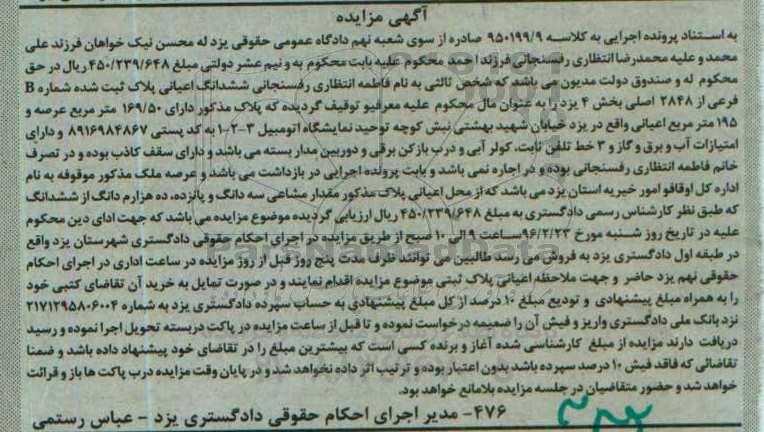 آگهی مزایده
به استناد پرونده اجرایی به کلاسه ۹۵۰۱۹۹/۹ صادره از سوی شعبه نهم دادگاه عمومی حقوقی یزد له محسن نیک خواهان فرزند علی
محمد و علیه محمدرضا انتظاری رفسنجانی فرزند احمد محکوم علیه بابت محکوم به و نیم عشر دولتی مبلغ ۴۵۰/۲۳۹/۶۴۸ ریال در حق
محکوم له و صندوق دولت مدیون می باشد که شخص ثالثی به نام فاطمه انتظاری رفسنجانی ششدانگ اعیانی پلاک ثبت شده شماره B
فرعی از ۲۸۴۸ اصلی بخش ۴ یزد را به عنوان مال محکوم علیه معرفیو توقیف گردیده که پلاک مذکور دارای ۱۶۹/۵۰ متر مربع عرصه و
۱۹۵ متر مربع اعیانی واقع در یزد خیابان شهید بهشتی نبش کوچه توحید نمایشگاه اتومبیل ۳-۲-۱ به کد پستی ۸۹۱۶۹۸۴۸۶۷ و دارای
امتیازات آب و برق و گاز و ۳ خط تلفن ثابت، کولر آبی و درب بازکن برقی و دوربین مدار بسته می باشد و دارای سقف کاذب بوده و در تصرف
خانم فاطمه انتظاری رفسنجانی بوده و در اجاره نمی باشد و بابت پرونده اجرایی در بازداشت می باشد و عرصه ملک مذکور موقوفه به نام
اداره کل اوقافو امور خیریه استان یزد می باشد که از محل اعیانی پلاک مذکور مقدار مشاعی سه دانگ و پانزده، ده هزارم دانگ از ششدانگ
که طبق نظر کارشناس رسمی دادگستری به مبلغ ۴۵۰/۲۳۹/۶۴۸ ریال ارزیابی گردیده موضوع مزایده می باشد که جهت ادای دین محکوم
علیه در تاریخ روز شنبه مورخ ۹۶/۲/۲۳ ساعت ۹ الی ۱۰ صبح از طریق مزایده در اجرای احکام حقوقی دادگستری شهرستان یزد واقع
در طبقه اول دادگستری یزد به فروش می رسد طالبین می توانند ظرف مدت پنج روز قبل از روز مزایده در ساعت اداری در اجرای احکام
حقوقی نهم یزد حاضر و جهت ملاحظه اعیانی پلاک ثبتی موضوع مزایده اقدام نمایند و در صورت تمایل به خرید آن تقاضای کتبی خود
را به همراه مبلغ پیشنهادی و تودیع مبلغ ۱۰ درصد از کل مبلغ پیشنهادی به حساب سپرده دادگستری یزد به شماره ۲۱۷۱۲۹۵۸۰۶۰۰۴
نزد بانک ملی دادگستری واریز و فیش آن را ضمیمه درخواست نموده و تا قبل از ساعت مزایده در پاکت دربسته تحویل اجرا نموده و رسید
دریافت دارند مزایده از مبلغ کارشناسی شده آغاز و برنده کسی است که بیشترین مبلغ را در تقاضای خود پیشنهاد داده باشد و ضمنا
تقاضائی که فاقد فیش ۱۰ درصد سپرده باشد بدون اعتبار بوده و ترتیب اثر داده نخواهد شد و در پایان وقت مزایده درب پاکت ها باز و قرائت
خواهد شد و حضور متقاضیان در جلسه مزایده بلامانع خواهد بود.
۴۷۶- مدیر اجرای احکام حقوقی دادگستری یزد - عباس رستمی